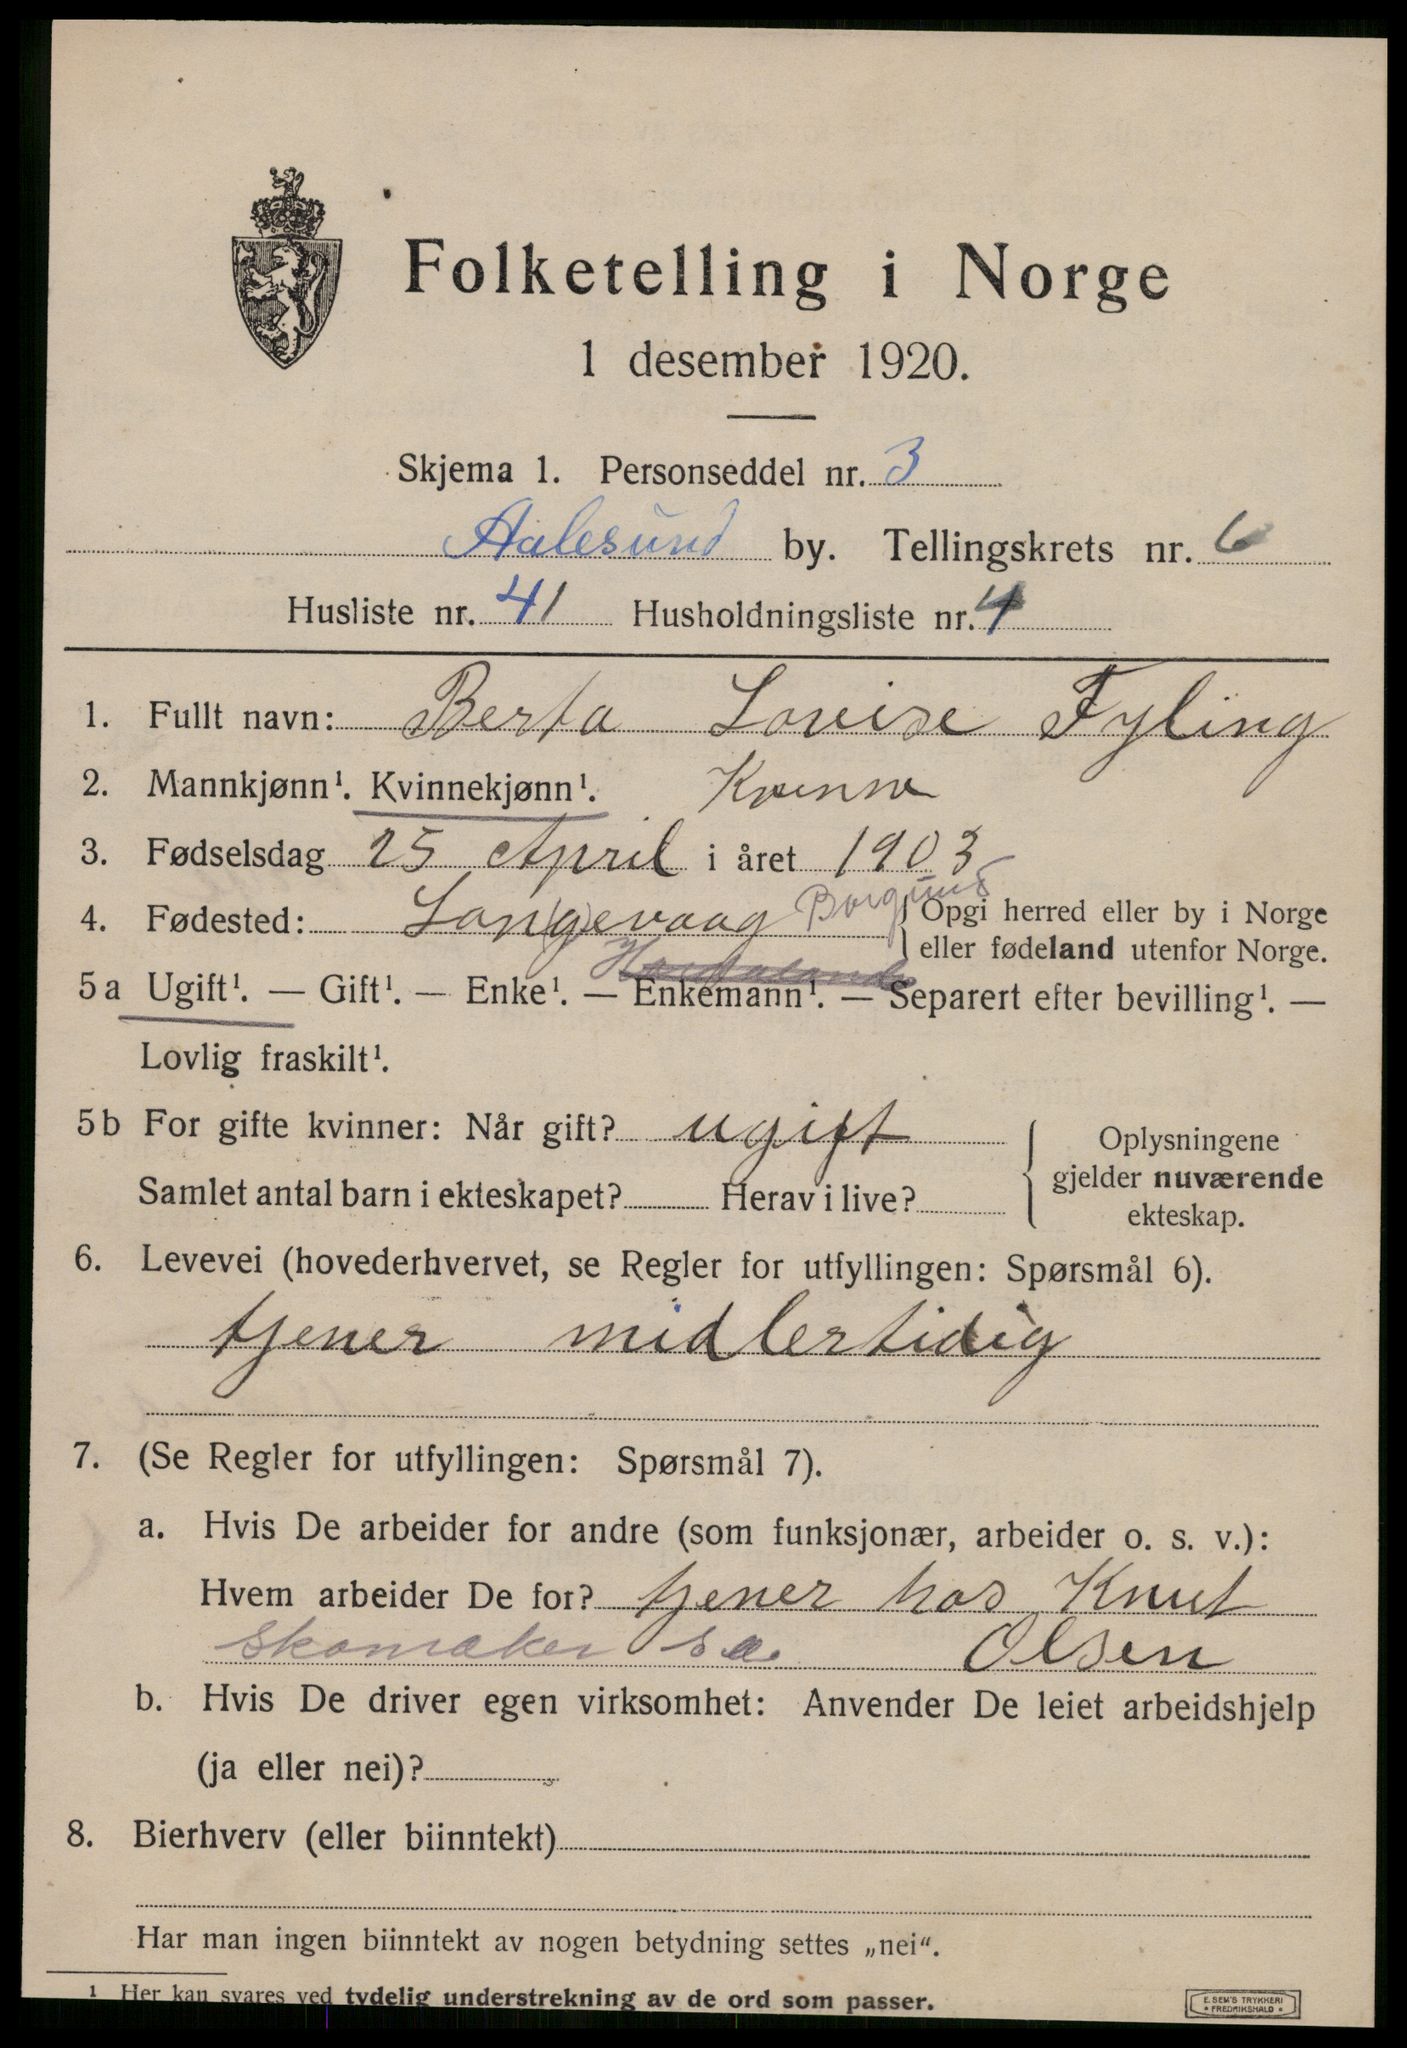 Folketelling i Norge
1 desember 1920.
Skjema 1. Personseddel nr. 3
Aalesund by. Tellingskrets nr. 6
Husliste nr. 41 Husholdningsliste nr. 4
1. Fullt navn: Berta Lovise Fyling
2. Mannkjønn¹. Kvinnekjønn¹. Kvinne
3. Fødselsdag 25 April i året 1903
4. Fødested: Lan(g)evaag Borgund { Opgi herred eller by i Norge
eller fødeland utenfor Norge.
5a Ugift¹. — Gift¹. — Enke¹. — Enkemann¹. — Separert efter bevilling¹. —
Lovlig fraskilt¹.
5b For gifte kvinner: Når gift? ugift
Samlet antal barn i ekteskapet? Herav i live?
{ Oplysningene
gjelder nuværende
ekteskap.
6. Levevei (hovederhvervet, se Regler for utfyllingen: Spørsmål 6).
tjener midlertidig
7. (Se Regler for utfyllingen: Spørsmål 7).
a. Hvis De arbeider for andre (som funksjonær, arbeider o. s. v.):
Hvem arbeider De for? tjener hos Knut
Skomaker Olsen
b. Hvis De driver egen virksomhet: Anvender De leiet arbeidshjelp
(ja eller nei)?
8. Bierhverv (eller biinntekt)
Har man ingen biinntekt av nogen betydning settes „nei“.
¹ Her kan svares ved tydelig understrekning av de ord som passer.
E. SEM'S TRYKKERI
* FREDRIKSHALD *